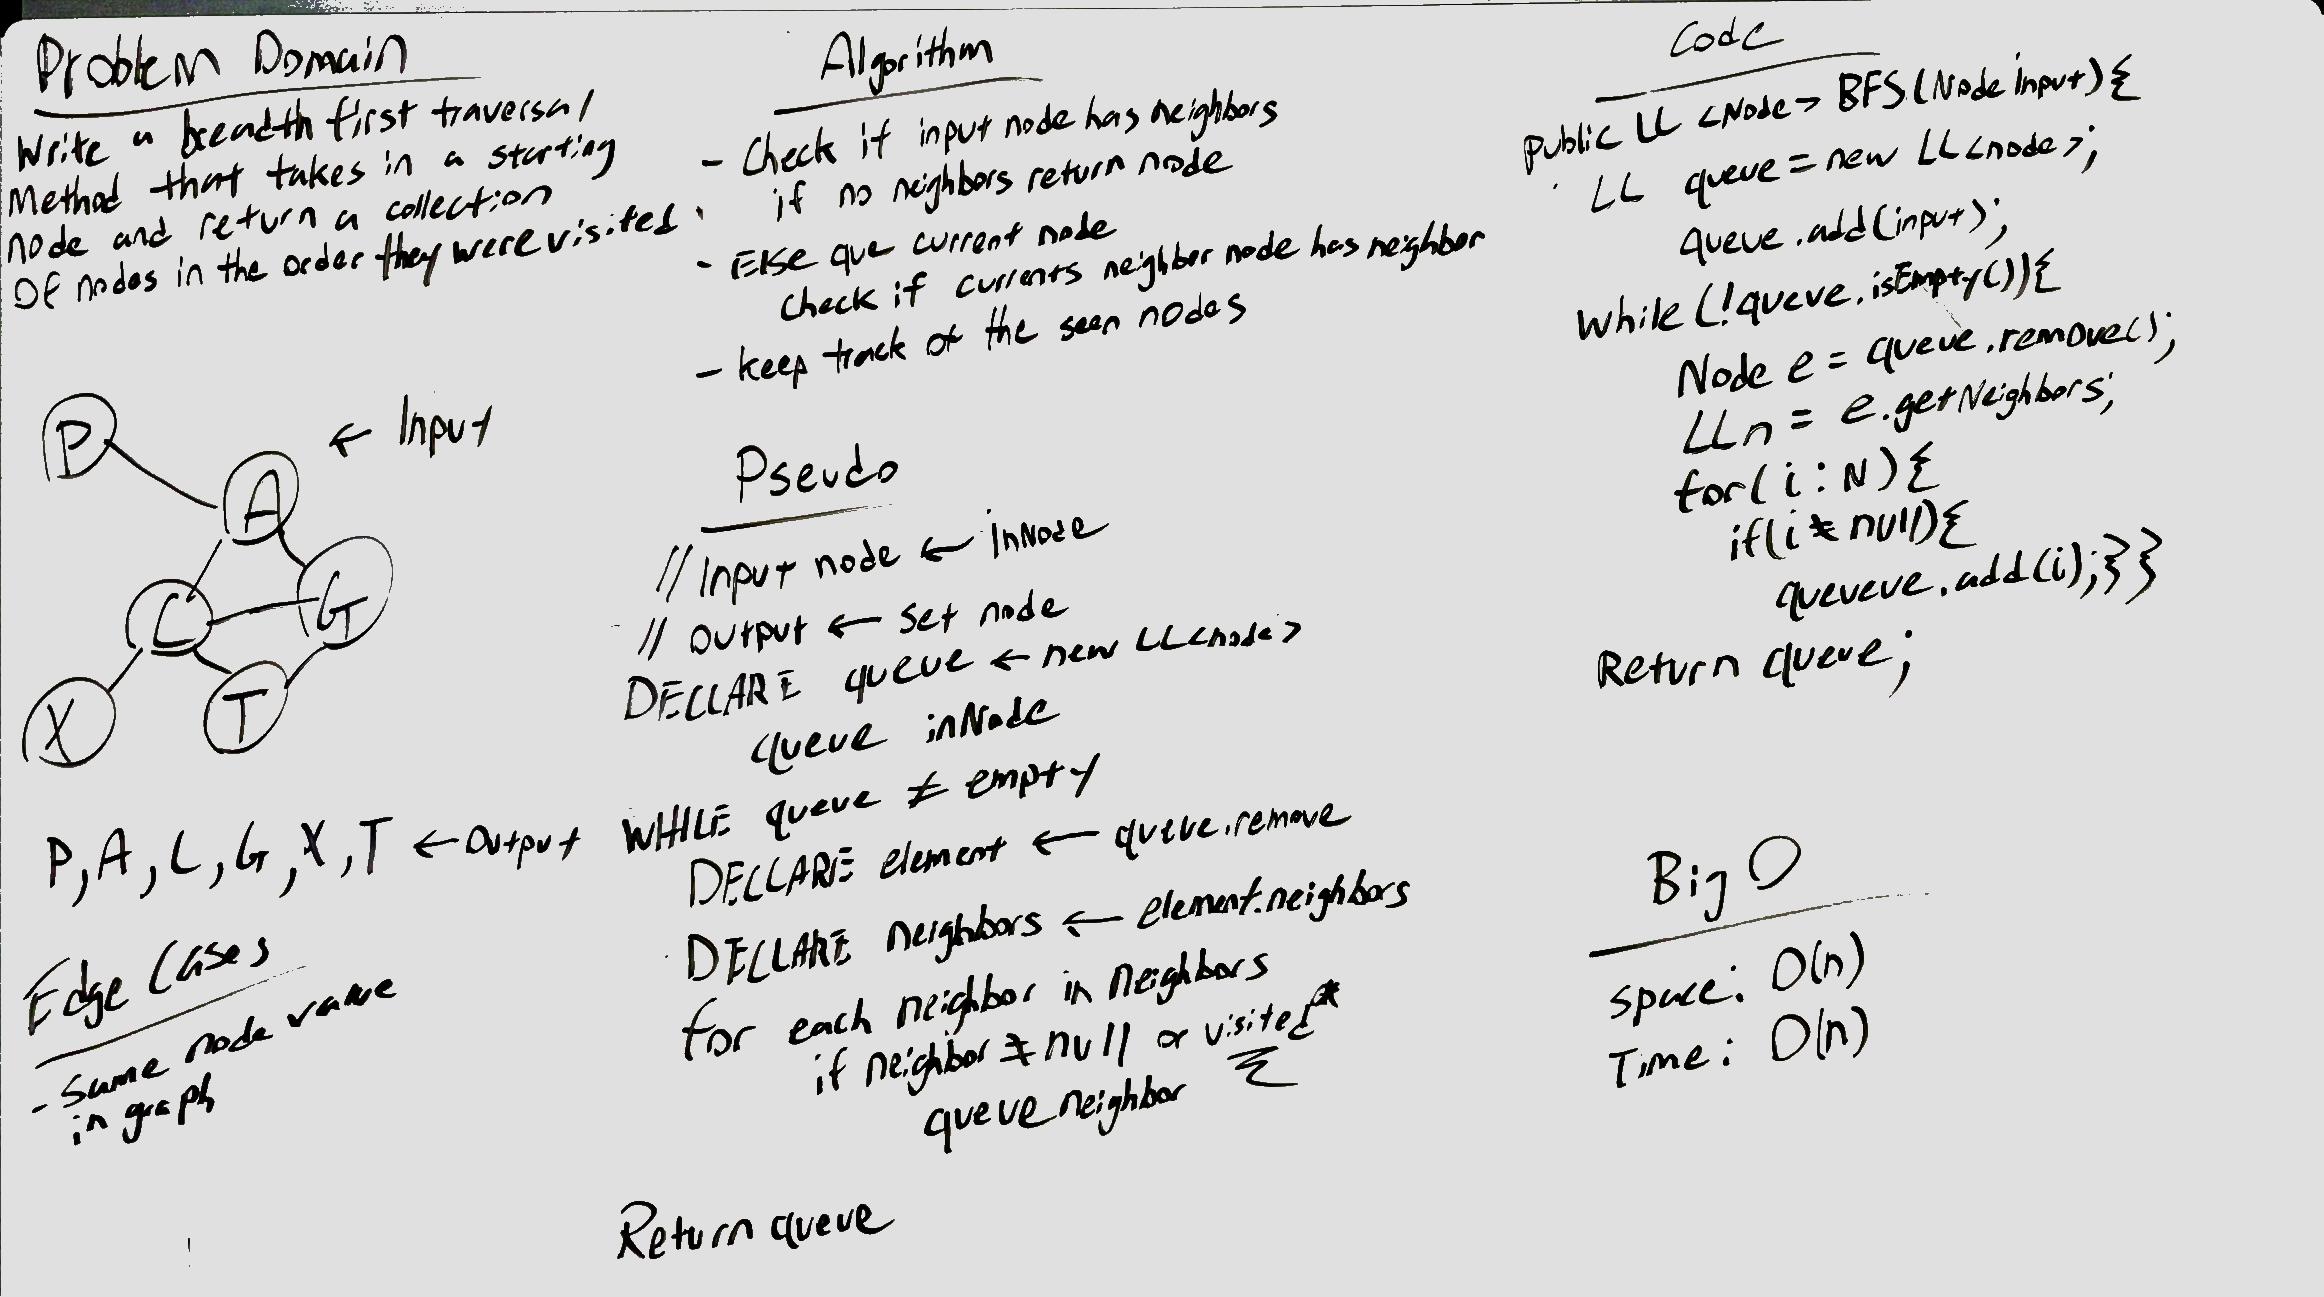 Problem Domain
Write a breadth first traversal
Method that takes in a starting
node and return a collection
Of nodes in the order they were visited
P
← Input
A
C
G
X
T
P, A, C, G, X, T ← Output
Edge Cases
- Same node value
in graph
Algorithm
- Check if input node has neighbors
if no neighbors return node
- Else que current node
check if currents neighbor node has neighbor
- keep track of the seen nodes
Pseudo
// Input node ← InNode
// Output ← set node
DECLARE queue ← new LL<node>
queue inNode
WHILE queue ≠ empty
DECLARE element ← queue.remove
DECLARE neighbors ← element.neighbors
for each neighbor in neighbors
if neighbor ≠ null or visited*
queue neighbor
Return queue
Code
Public LL <Node> BFS(Node input){
LL queue = new LL<node>;
queue.add(input);
While (!queue.isEmpty()){
Node e = queue.remove();
LL n = e.getNeighbors;
for(i : N){
if(i ≠ null){
queueve.add(i);}}
Return queue;
Big O
space: O(n)
Time: O(n)